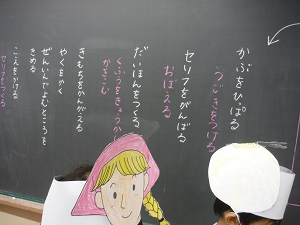 かぶをひっぱる
うごきをつける
セリフをがんばる
おぼえる
だいほんをつくる
くふうをきょうか
かきこむ
きもちをかんがえる
やくをかく
ぜんいんでよむところを
きめる
こえをかける
セリフをつくる